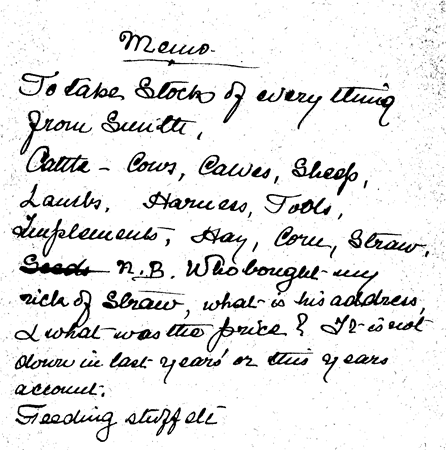 Memo.
To take Stock of every thing
from Smith,
Cattle - Cows, Calves, Sheep,
Lambs, Harness, Tools,
Implements, Hay, Corn, Straw.
Seeds N.B. Who bought my
rick of Straw, what is his address,
& what was the price? It is not
down in last years' or this years
account.
Feeding stuff etc